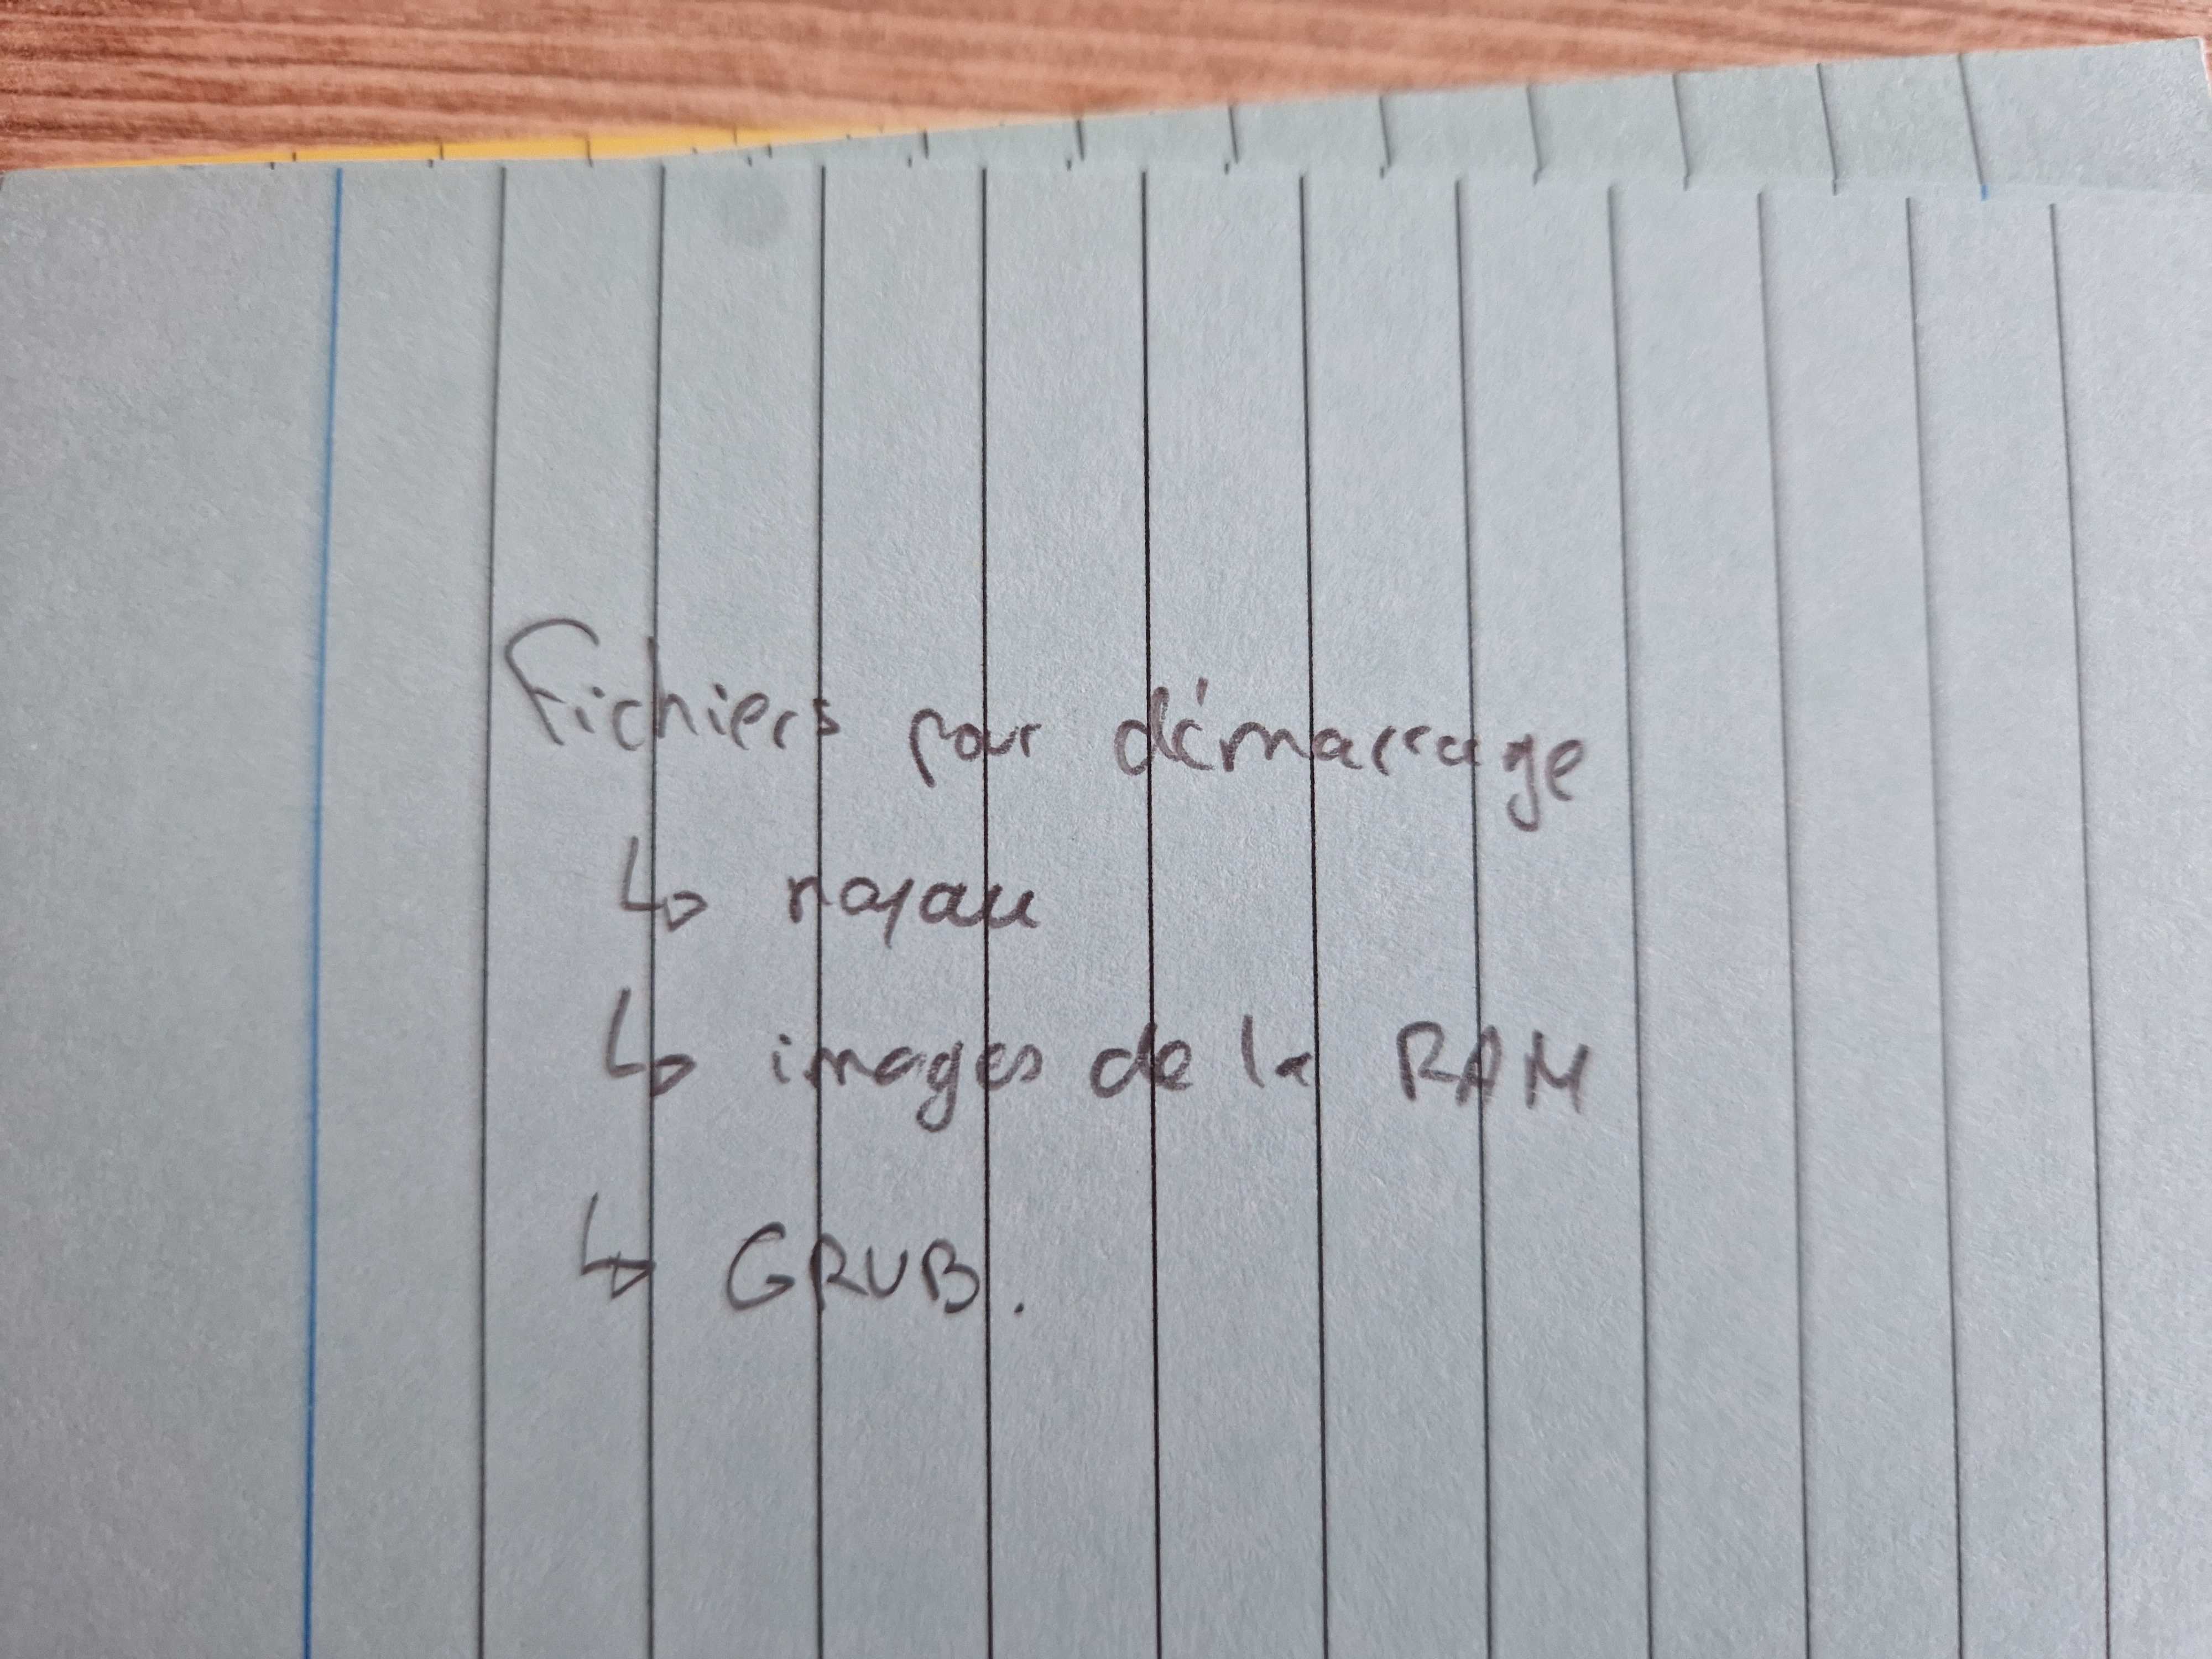 Fichiers pour démarrage
↳ noyau
↳ images de la RAM
↳ GRUB.